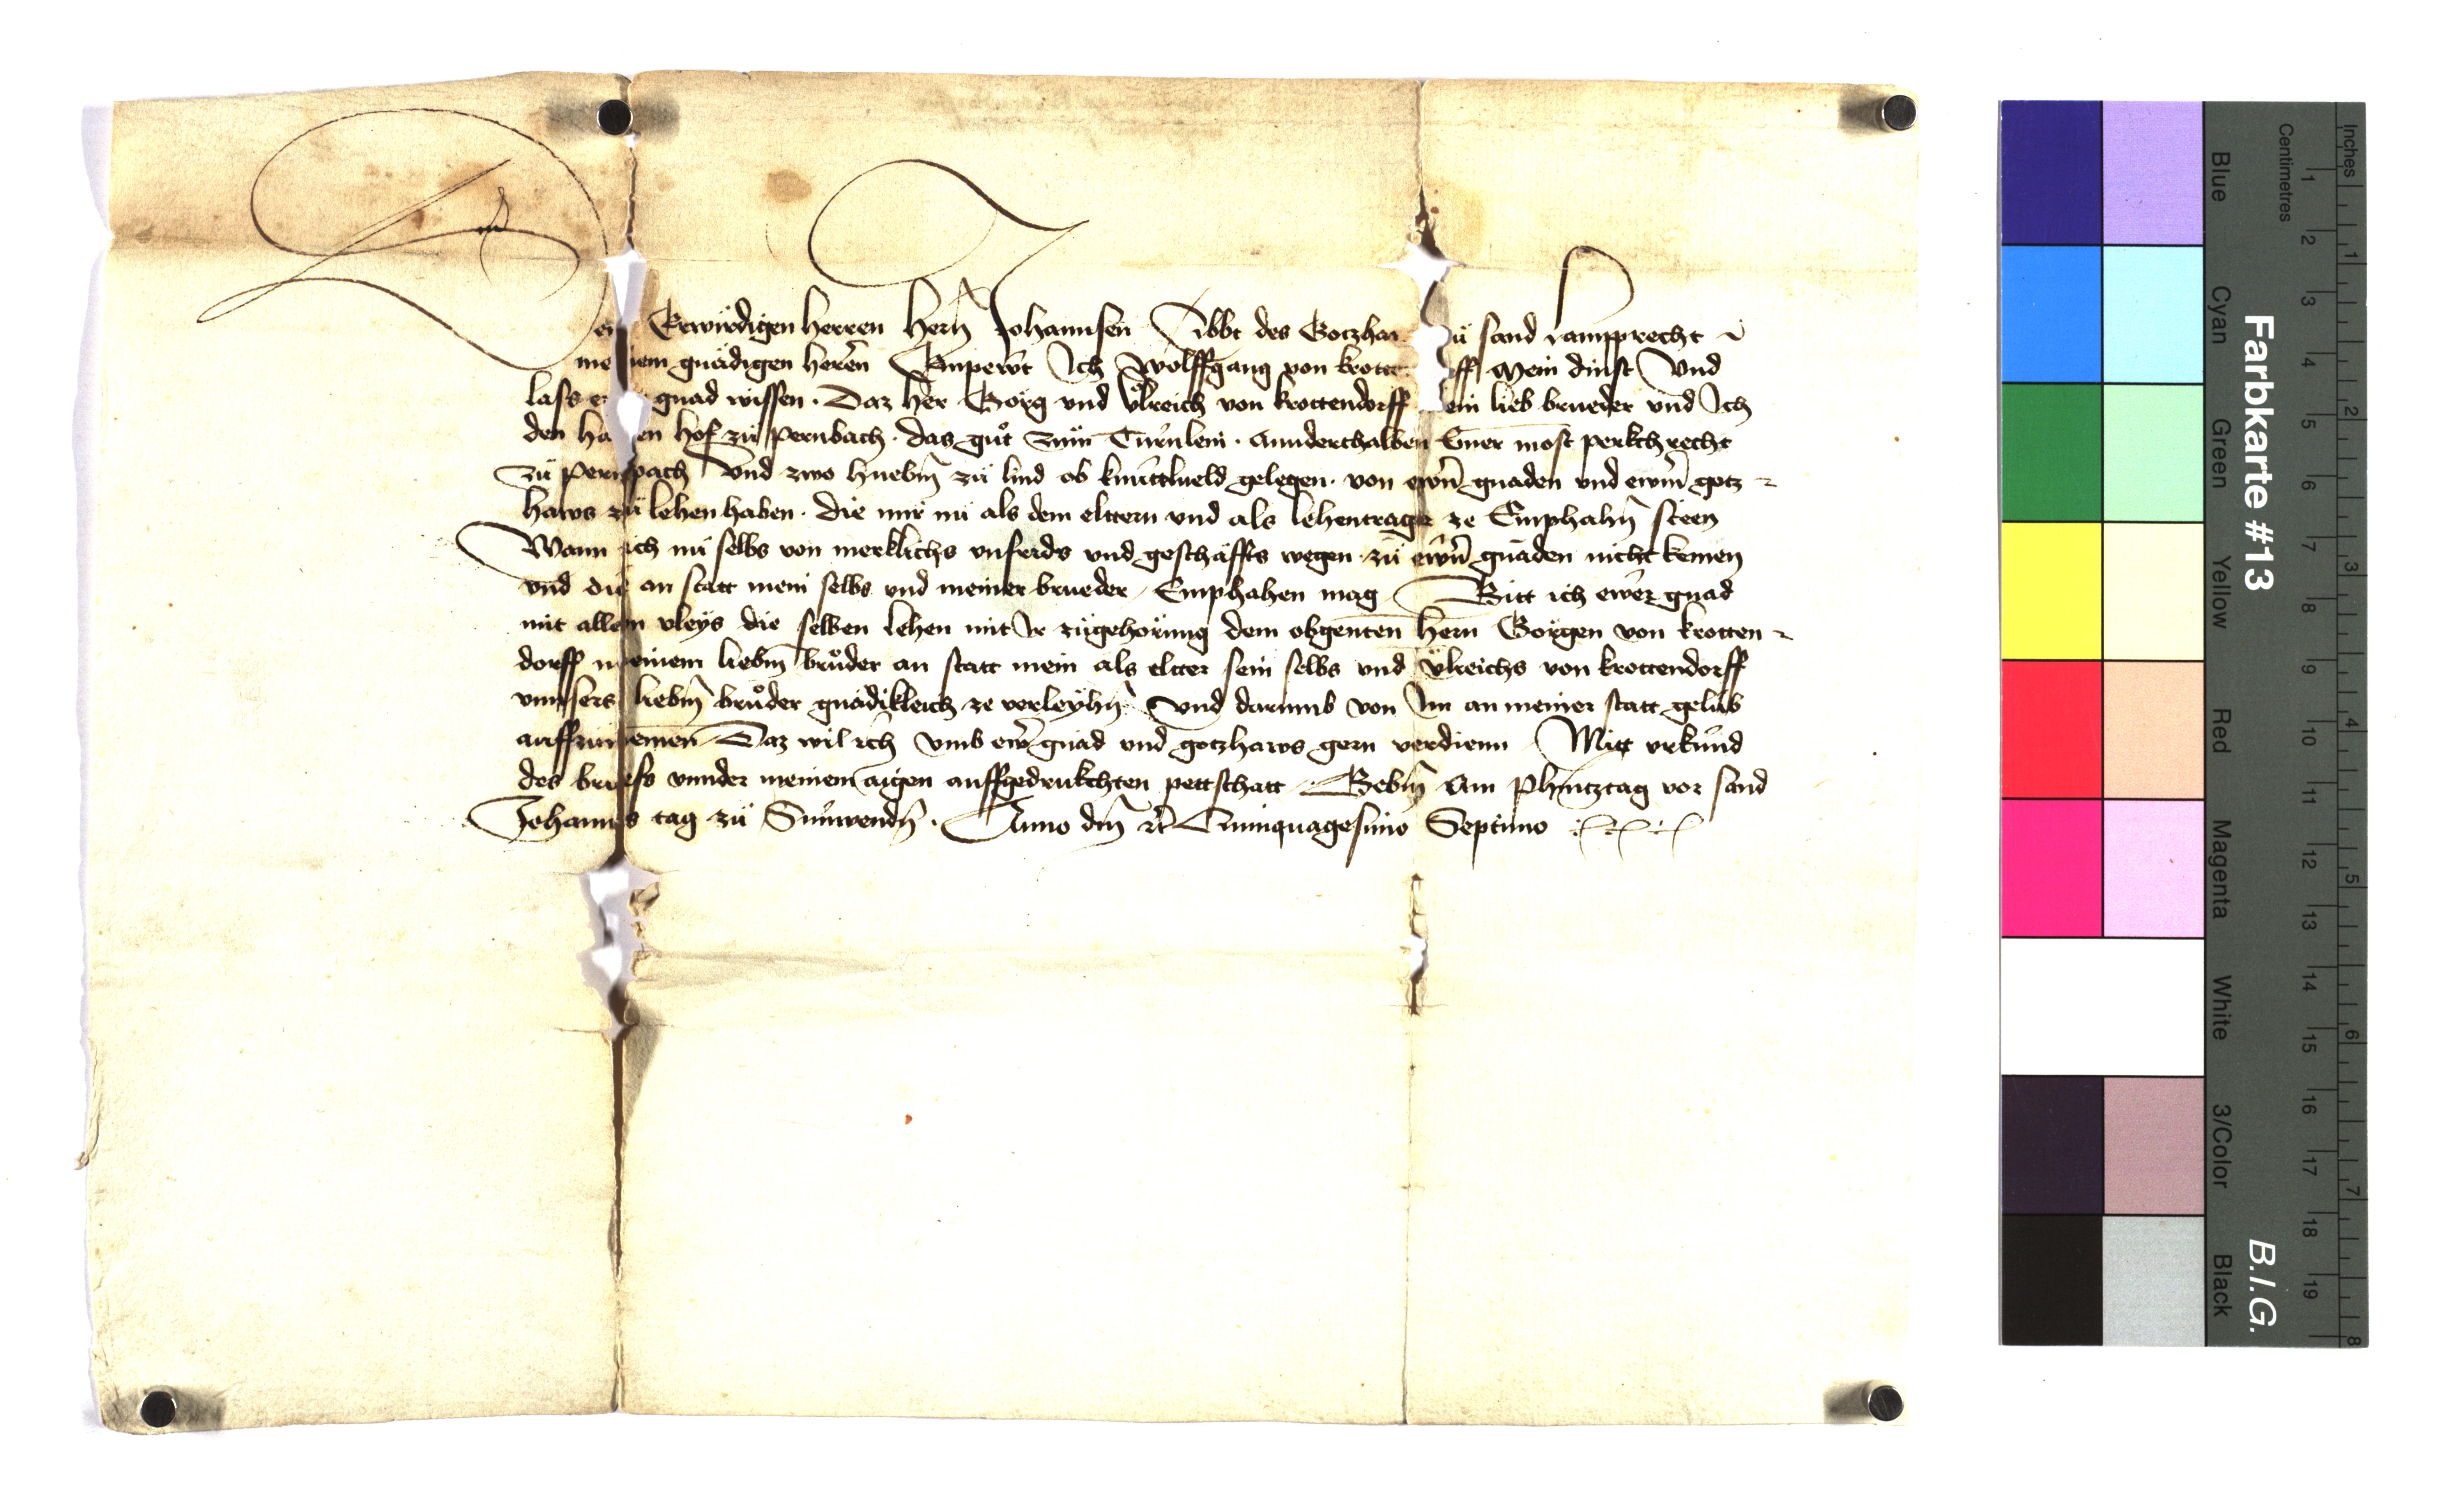 Dem Erwirdigen herren hern Johannsen Abbt des Gotzhaws zu sand lampprecht
meinem gnädigen heren Enpewt Ich Wolffgang von krottendorff Mein dinst Und
lass ewr gnad wissen. Daz her Görg und Ulreich von krottendorff mein lieb brueder und Ich
den halben hof zu pernbach. das gut zum Turnlein. Annderthalben Emer most perkchrecht
zu pernpach Und zwo huebm zu lind ob knüttlueld gelegen. von ewrn gnaden und ewrm gotz
haws zu lehen haben. die mir nu als dem elttern und als lehentrager ze Emphahn steen
Wann ich nu selbs von merklichs unfrids und geschäffts wegen. zu ewrn gnaden nicht kemen
und die an statt mein selbs und meiner brueder Emphahen mag Bitt ich ewer gnad
mit allem vleys die selben lehen mit Ir zugehörung dem obgenten hern Görgen von krotten
dorff meinem liebm bruder an statt mein als eltter sein selbs und Ulreichs von krottendorff
unnsers liebm bruder gnädikleich ze verleyhn Und darumb von Im an meiner statt gelub
auffzunemen Daz wil ich umb ewr gnad und gotzhaws gern verdienn Mitt urkund
des briefs unnder meinem aigen auffgedrukchten pettschatt Gebm Am Phintztag vor sand
Johanns tag zu Sunwendn. Anno dm rc Quinquagesimo Septimo
Farbkarte #13
B.I.G.
Inches
Centimetres
1 2 3 4 5 6 7 8 9 10 11 12 13 14 15 16 17 18 19
1 2 3 4 5 6 7 8
Blue
Cyan
Green
Yellow
Red
Magenta
White
3/Color
Black